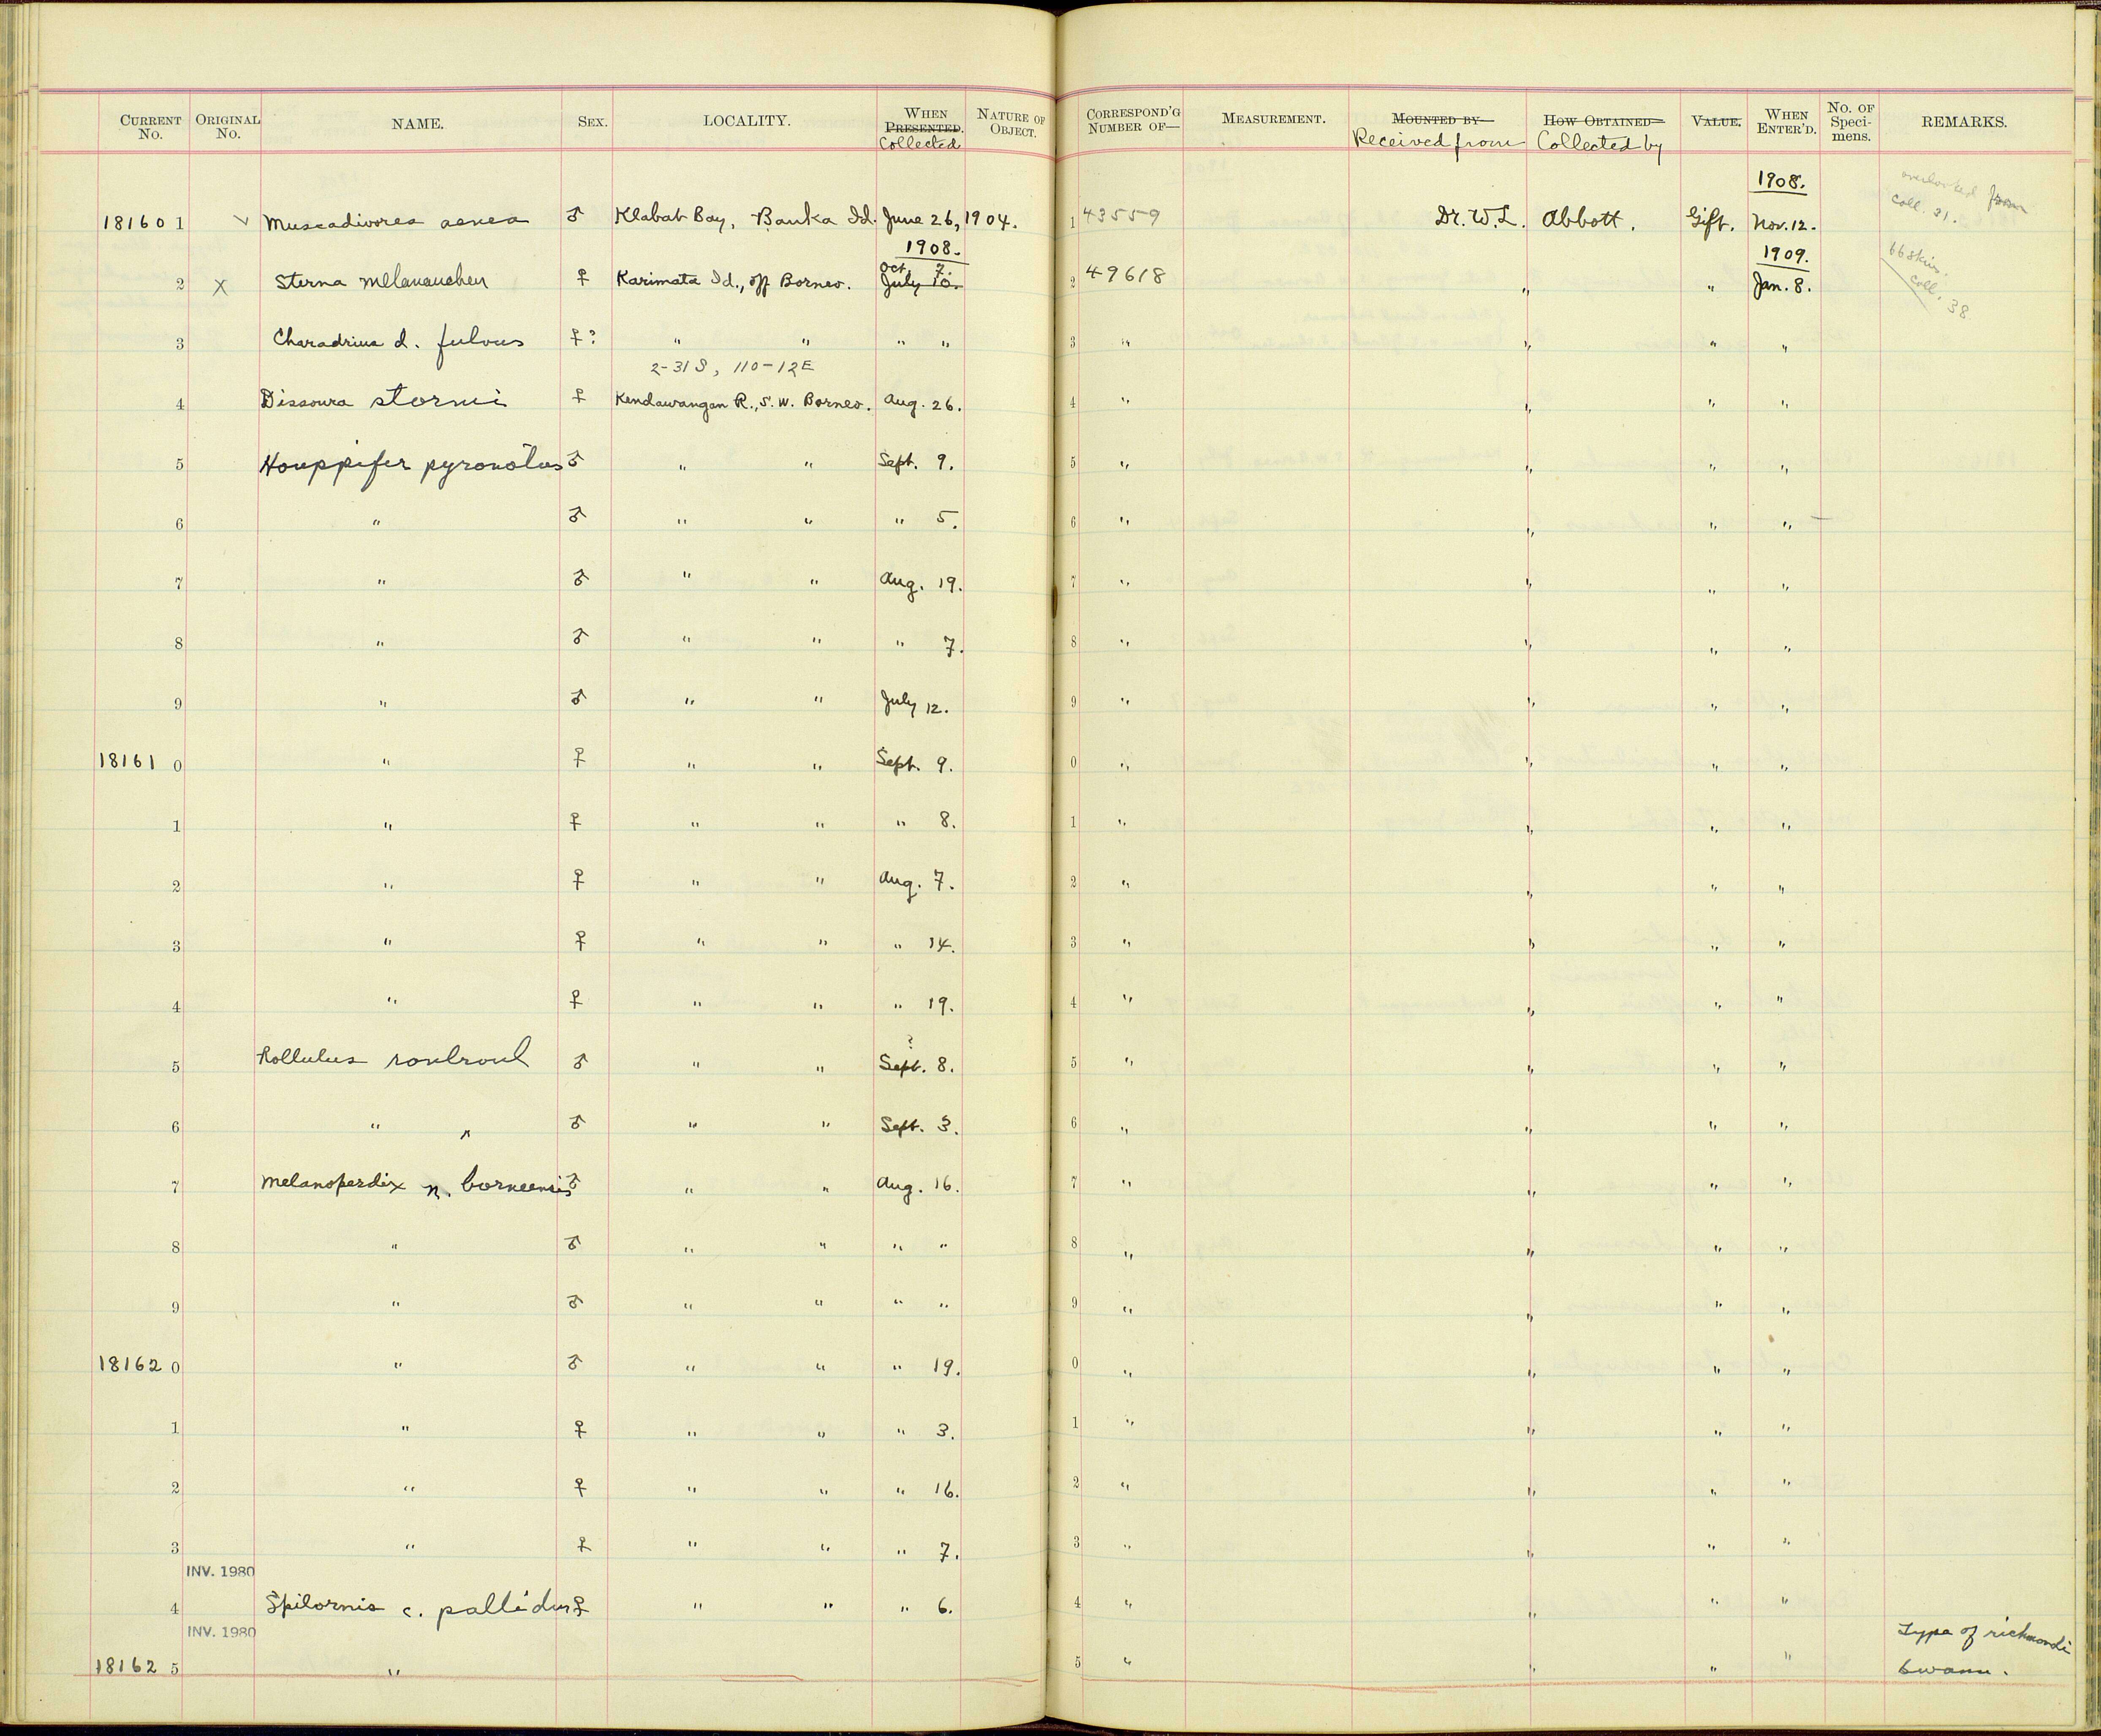 CURRENT No. ORIGINAL No. NAME. SEX. LOCALITY. WHEN PRESENTED. Collected NATURE OF OBJECT. CORRESPOND'G NUMBER OF— MEASUREMENT. MOUNTED BY— Received from HOW OBTAINED— Collected by VALUE. WHEN ENTER'D. No. OF Speci- mens. REMARKS.
1908.
181601 Muscadivores aenea ♂ Klabat Bay, Banka Id. June 26, 1904. 1 43559 Dr. W. L. Abbott. Gift. Nov. 12. overlooked from coll. 21.
1908. 1909.
2 X Sterna melanauchen ♀ Karimata Id., off Borneo. Oct. 7. July 10. 2 49618 " " Jan. 8. 66 skins. Coll. 38
3 Charadrius d. fulvus ♀? " " " " 3 " " " "
2-31 S, 110-12 E
4 Dissoura stormi ♀ Kendawangan R., S.W. Borneo. Aug. 26. 4 " " " "
5 Houppifer pyronotus ♂ " " Sept. 9. 5 " " " "
6 " ♂ " " " 5. 6 " " " " —
7 " ♂ " " Aug. 19. 7 " " " "
8 " ♂ " " " 7. 8 " " " "
9 " ♂ " " July 12. 9 " " " "
18161 0 " ♀ " " Sept. 9. 0 " " " "
1 " ♀ " " " 8. 1 " " " "
2 " ♀ " " Aug. 7. 2 " " " "
3 " ♀ " " " 14. 3 " " " "
4 " ♀ " " " 19. 4 " " " "
?
5 Rollulus roulroul ♂ " " Sept. 8. 5 " " " "
6 " " ♂ " " Sept. 3. 6 " " " "
7 Melanoperdix n. borneensis ♂ " " Aug. 16. 7 " " " "
8 " ♂ " " " " 8 " " " "
9 " ♂ " " " " 9 " " " "
18162 0 " ♂ " " " 19. 0 " " " "
1 " ♀ " " " 3. 1 " " " "
2 " ♀ " " " 16. 2 " " " "
3 " ♀ " " " 7. 3 " " " "
INV. 1980
4 Spilornis c. pallidus ♀ " " " 6. 4 " " " "
INV. 1980
18162 5 " 5 " " " " Type of richmondi Swann.